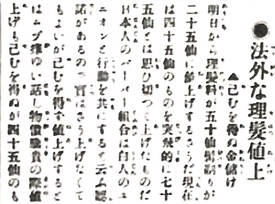 ●法外な理髪値上
▲己むを得ぬ金儲け
明日から理髪料が五十仙均割りが
二十五仙に値上げするさうだ現在
は四十五仙のものを突飛的に七十
五仙とは思ひ切つて上げたものだ
日本人のバーバー組合は白人のユ
ニオンと行動を共にすると云ふ
諾があるので實はさう上げなくて
もよいが己むを得ず値上げすると
はムヅ痒ゆい話し物價騰貴の際値
上げも己むを得ぬが四十五仙のも